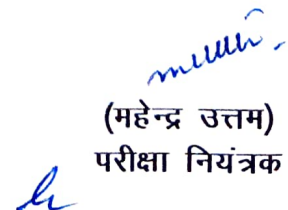 (महेन्द्र उत्तम)
परीक्षा नियंत्रक